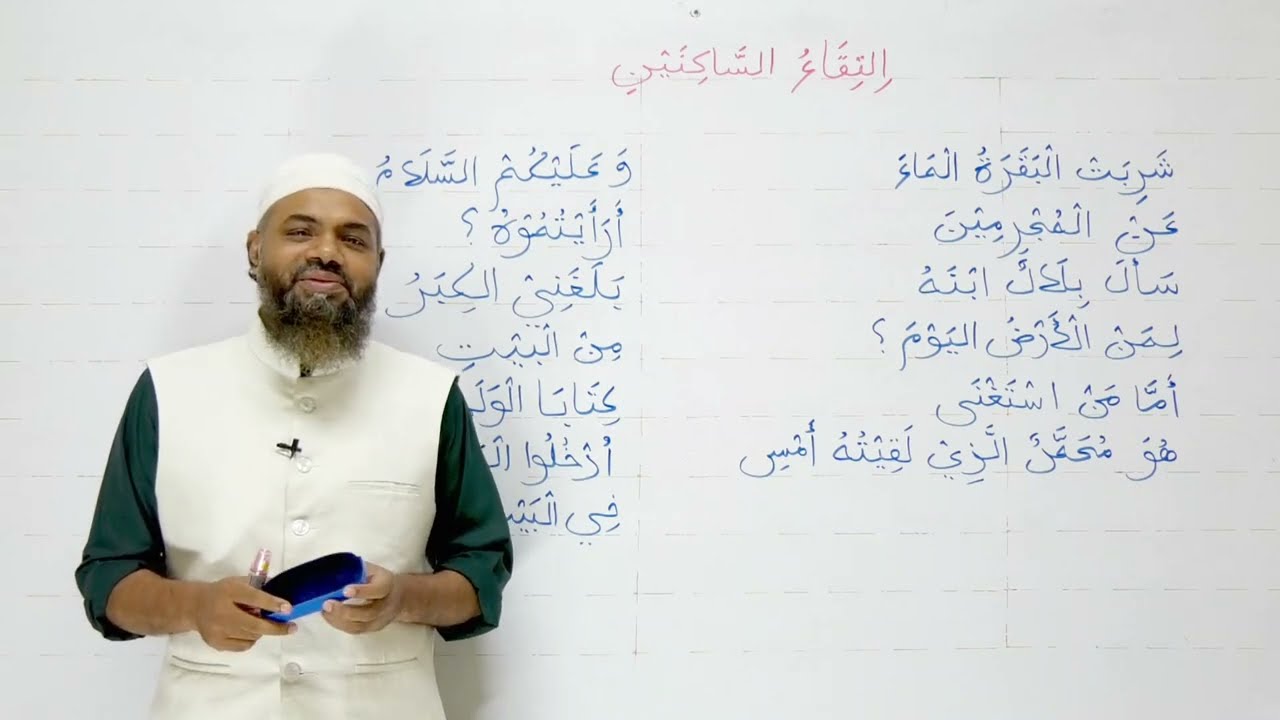 اِلتِقَاءُ السَّاكِنَيْنِ
شَرِبَتْ الْبَقَرَةُ الْمَاءَ
عَنْ الْمُجْرِمِيْنَ
سَأَلَ بِلَالٌ ابْنَهُ
لِمَنْ الْأَرْضُ اليَوْمَ؟
أَمَّا مَنْ اسْتَغْنَى
هُوَ مُحَمَّدٌ الَّذِيْ لَقِيْتُهُ أَمْسِ
وَ عَلَيْكُمْ السَّلَامُ
أَرَأَيْتُمُوْهُ؟
بَلَغَنِيْ الْكِبَرُ
مِنْ الْبَيْتِ
كِتَابَا
اُدْخُلُوا
فِي